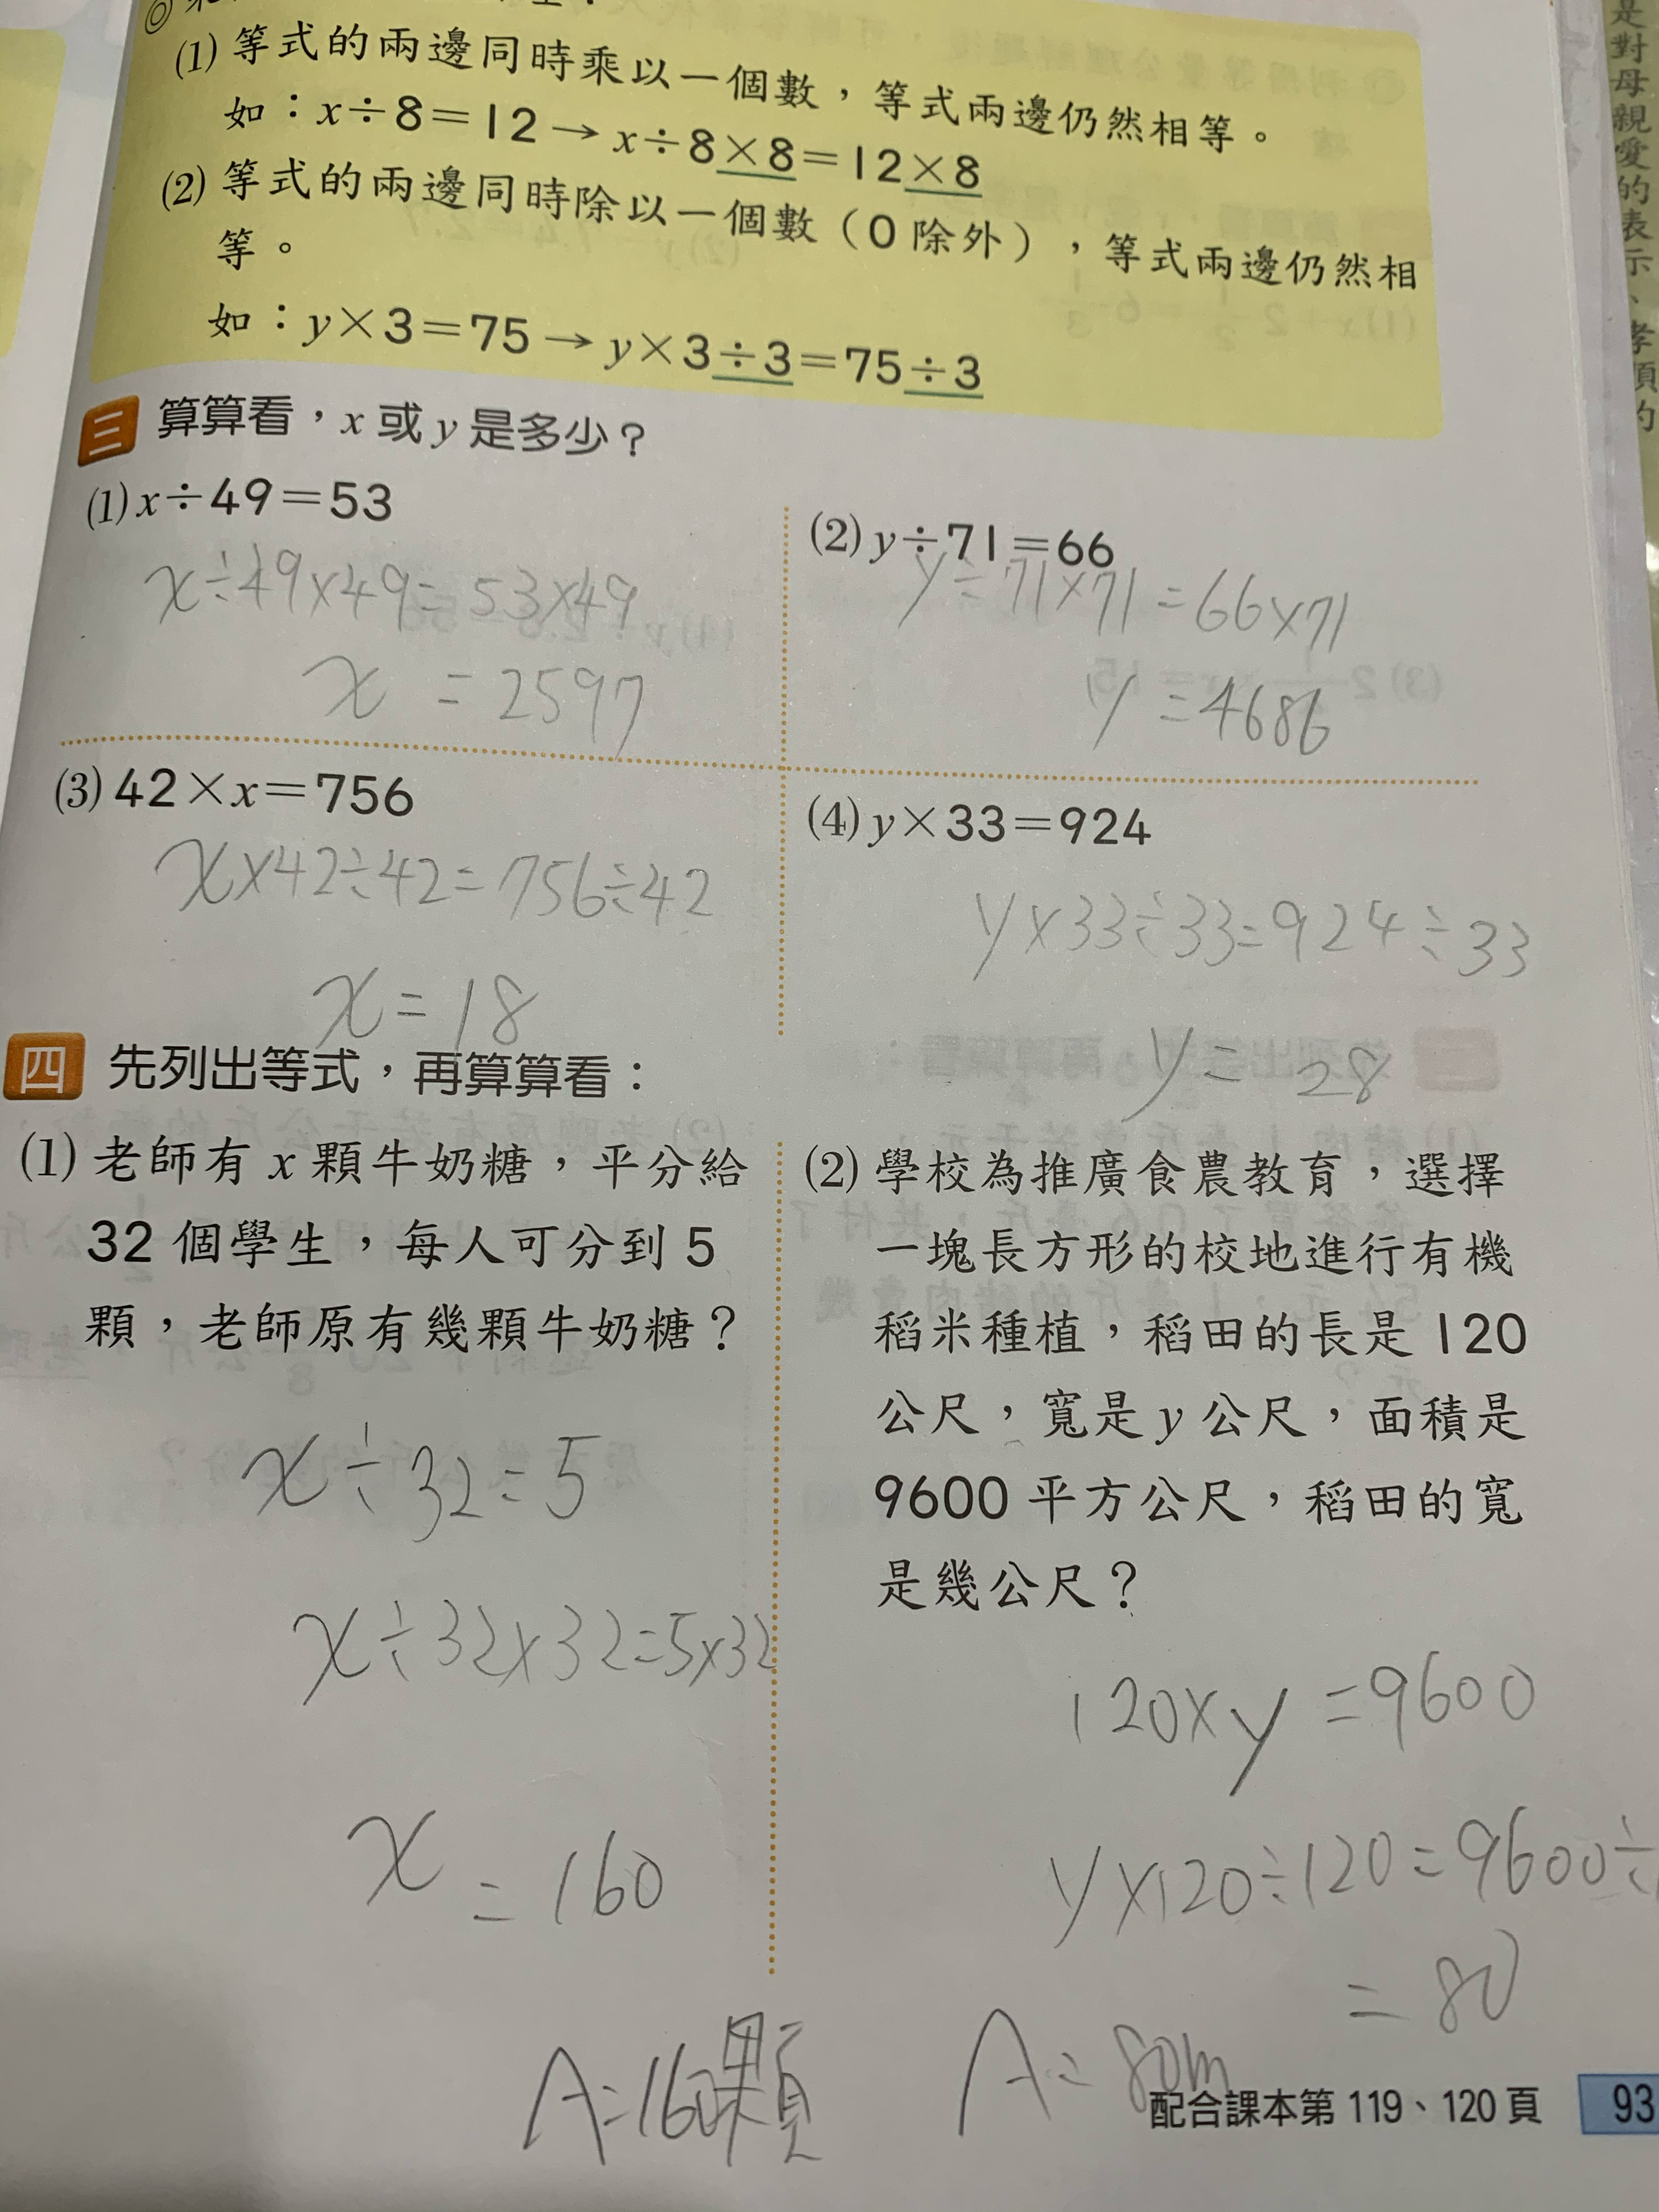 (1) 等式的兩邊同時乘以一個數，等式兩邊仍然相等。
如：x÷8＝12→x÷8×8＝12×8
(2) 等式的兩邊同時除以一個數（0除外），等式兩邊仍然相
等。
如：y×3＝75→y×3÷3＝75÷3
三 算算看，x或y是多少？
(1) x÷49＝53
x÷49×49=53×49
x=2597
(2) y÷71＝66
y÷71×71=66×71
y=4686
(3) 42×x＝756
x×42÷42=756÷42
x=18
(4) y×33＝924
y×33÷33=924÷33
y=28
四 先列出等式，再算算看：
(1) 老師有x顆牛奶糖，平分給
32個學生，每人可分到5
顆，老師原有幾顆牛奶糖？
x÷32=5
x÷32×32=5×32
x=160
A=160顆
(2) 學校為推廣食農教育，選擇
一塊長方形的校地進行有機
稻米種植，稻田的長是120
公尺，寬是y公尺，面積是
9600平方公尺，稻田的寬
是幾公尺？
120×y=9600
y×120÷120=9600÷
=80
A=80m
配合課本第119、120頁
93
是對母親愛的表示、孝順的